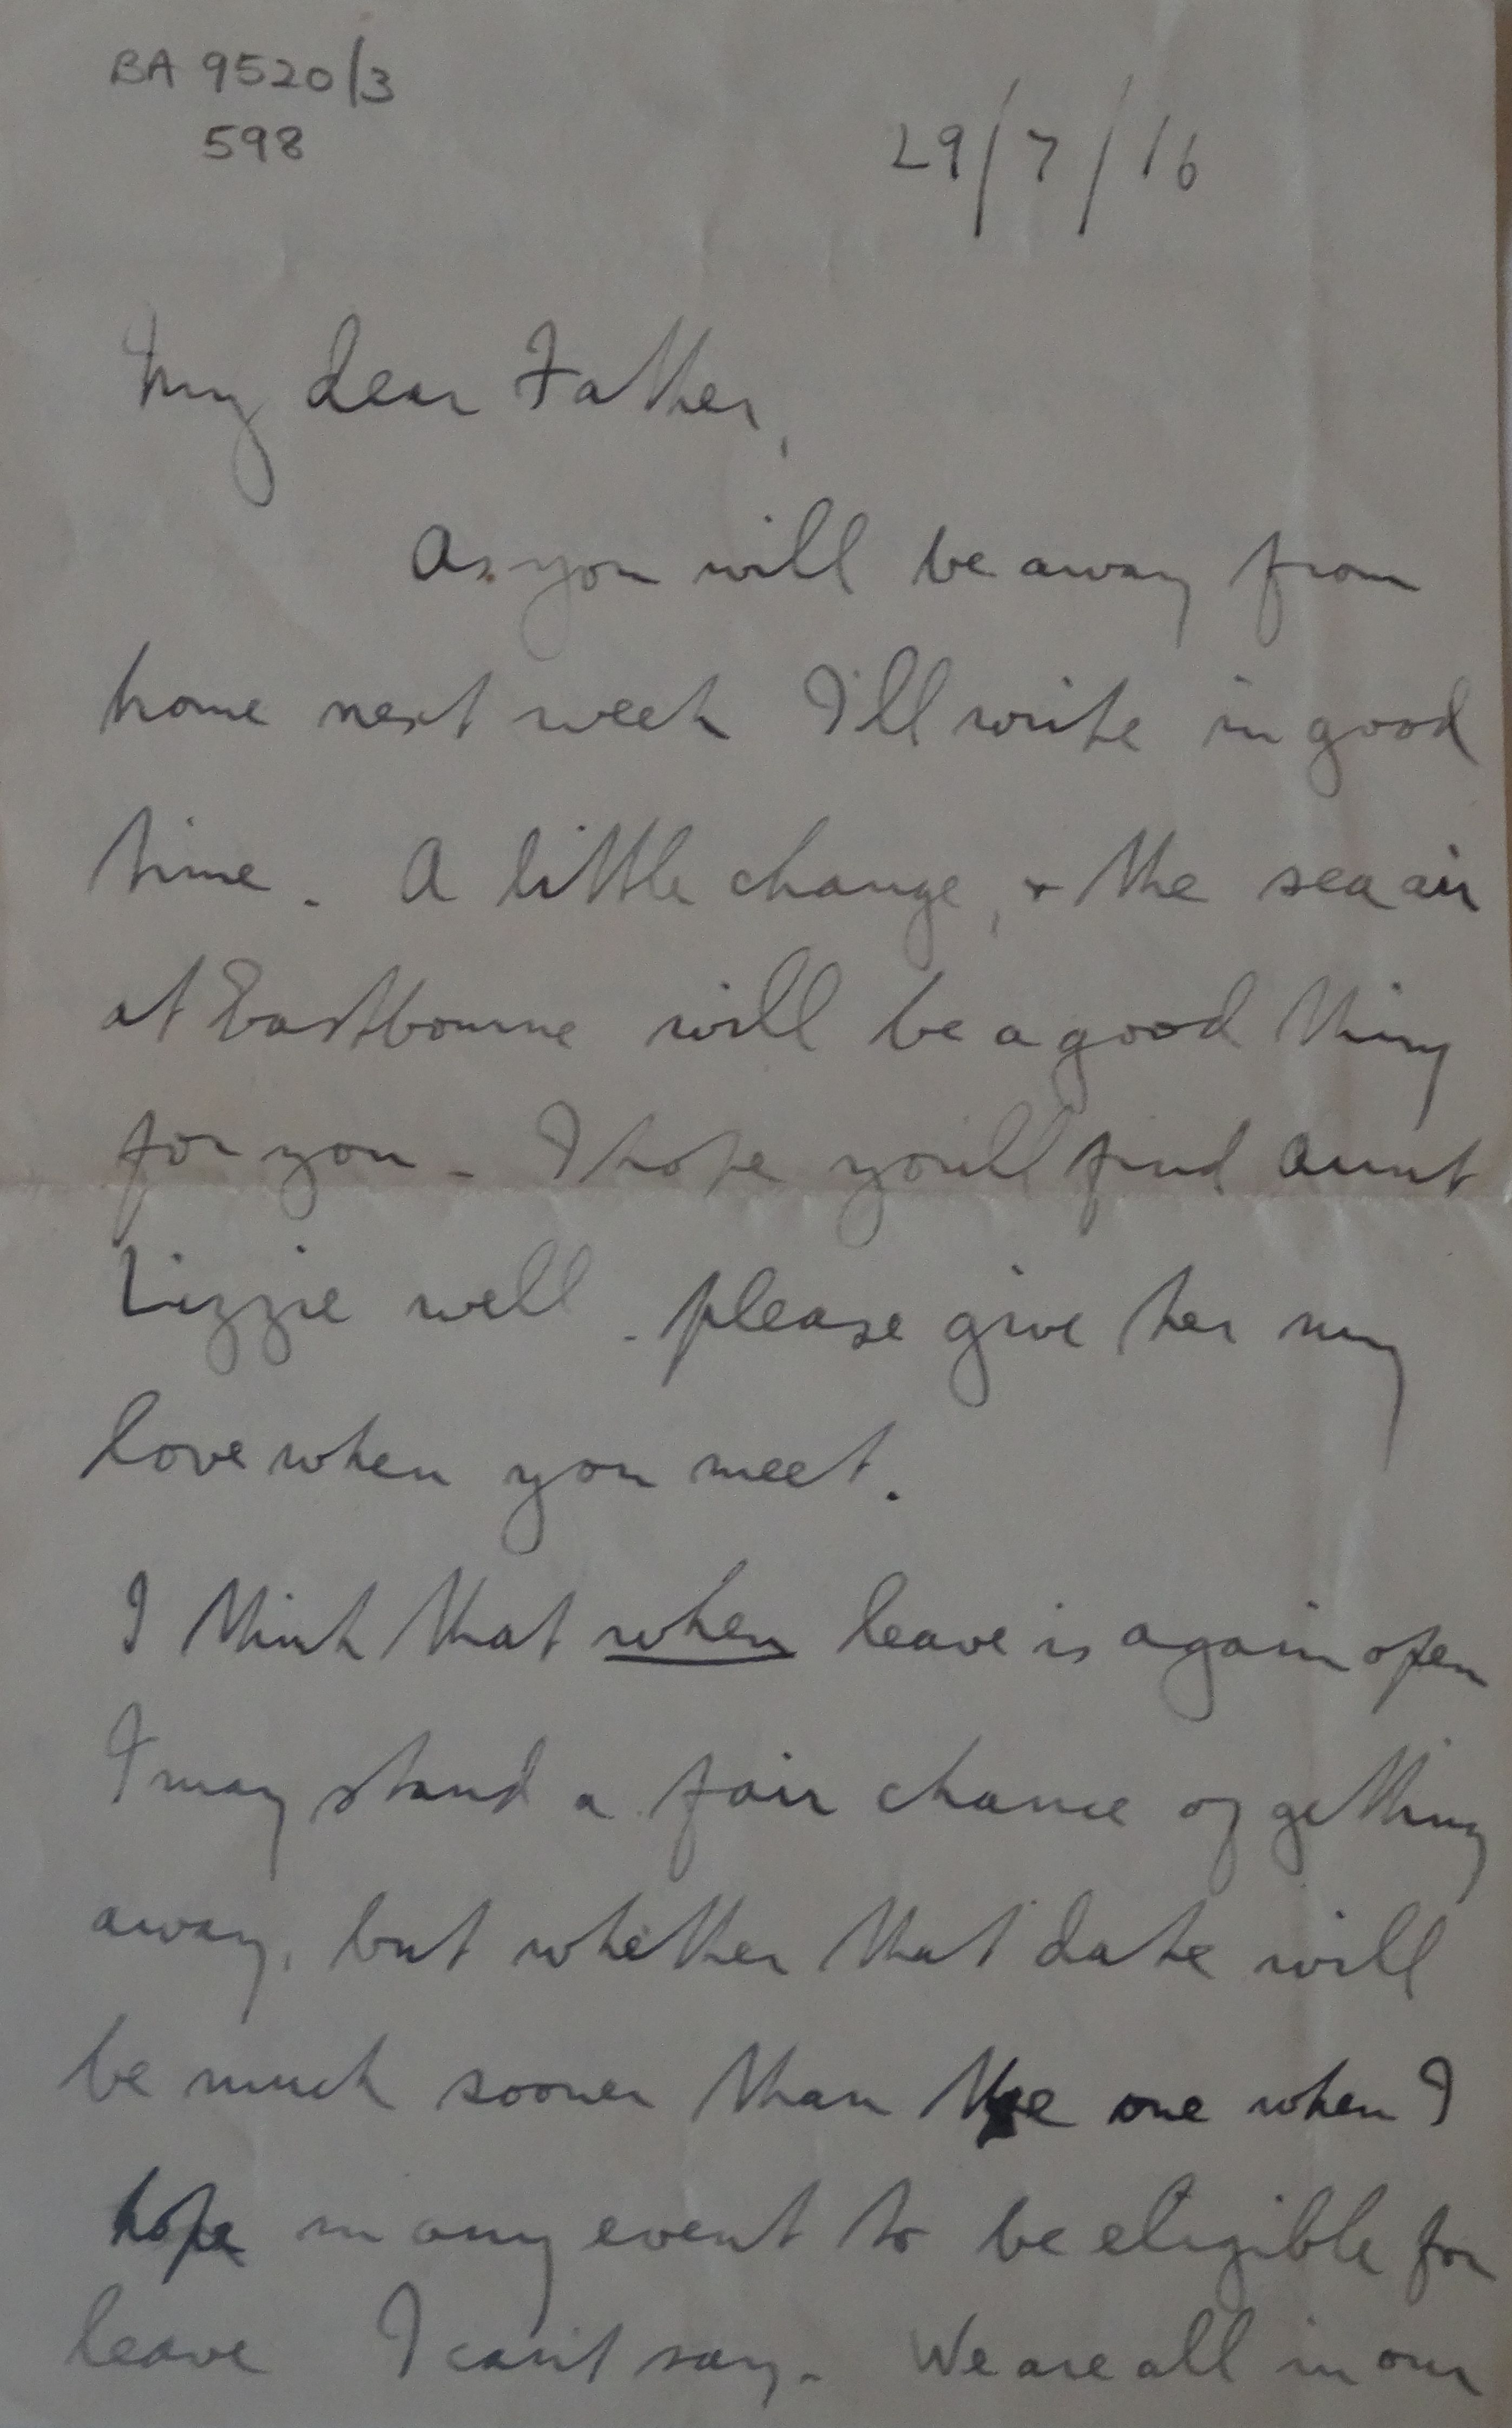 BA 9520/3
598
29/7/16
My dear Father,
As you will be away from
home next week I'll write in good
time. A little change, + the sea air
at Eastbourne will be a good thing
for you - I hope you'll find Aunt
Lizzie well. please give her my
love when you meet.
I think that when leave is again open
I may stand a fair chance of getting
away, but whether that date will
be much sooner than the one when I
hope in any event to be eligible for
leave I can't say. We are all in our